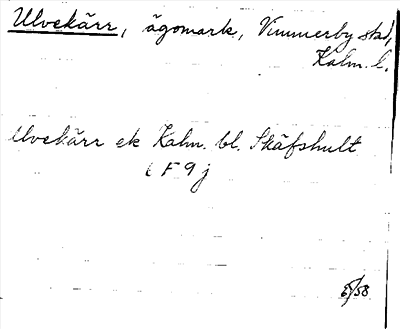 Ulvekärr, ägomark, Vimmerby stad,
Kalm. l.
Ulvekärr ek Kalm. bl. Skäfshult
( F 9 j
5/58